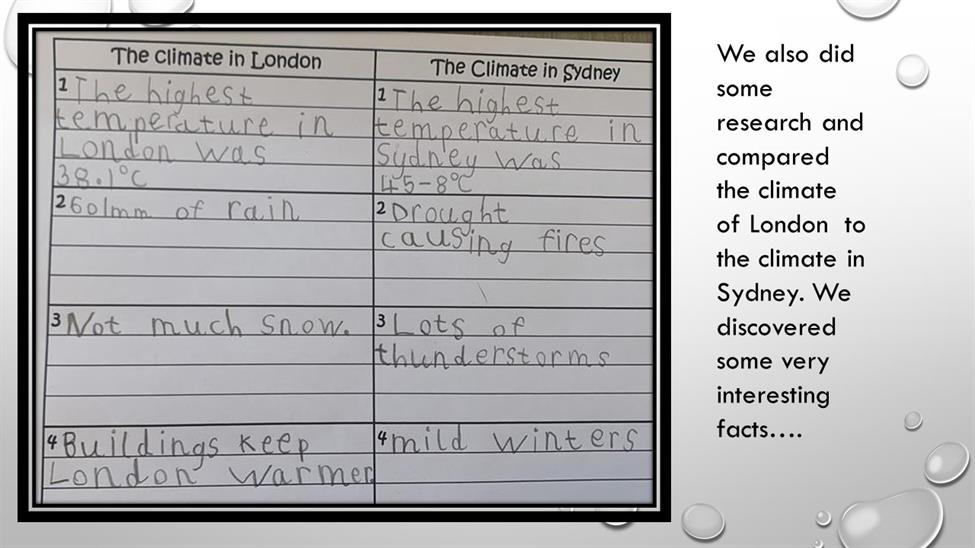 The Climate in London
1 The highest
temperature in
London was
38.1°C
2 601mm of rain
3 Not much snow.
4 Buildings keep
London warmer
The Climate in Sydney
1 The highest
temperature in
Sydney was
45-8°C
2 Drought
causing fires
3 Lots of
thunderstorms
4 mild winters
We also did
some
research and
compared
the climate
of London to
the climate in
Sydney. We
discovered
some very
interesting
facts….